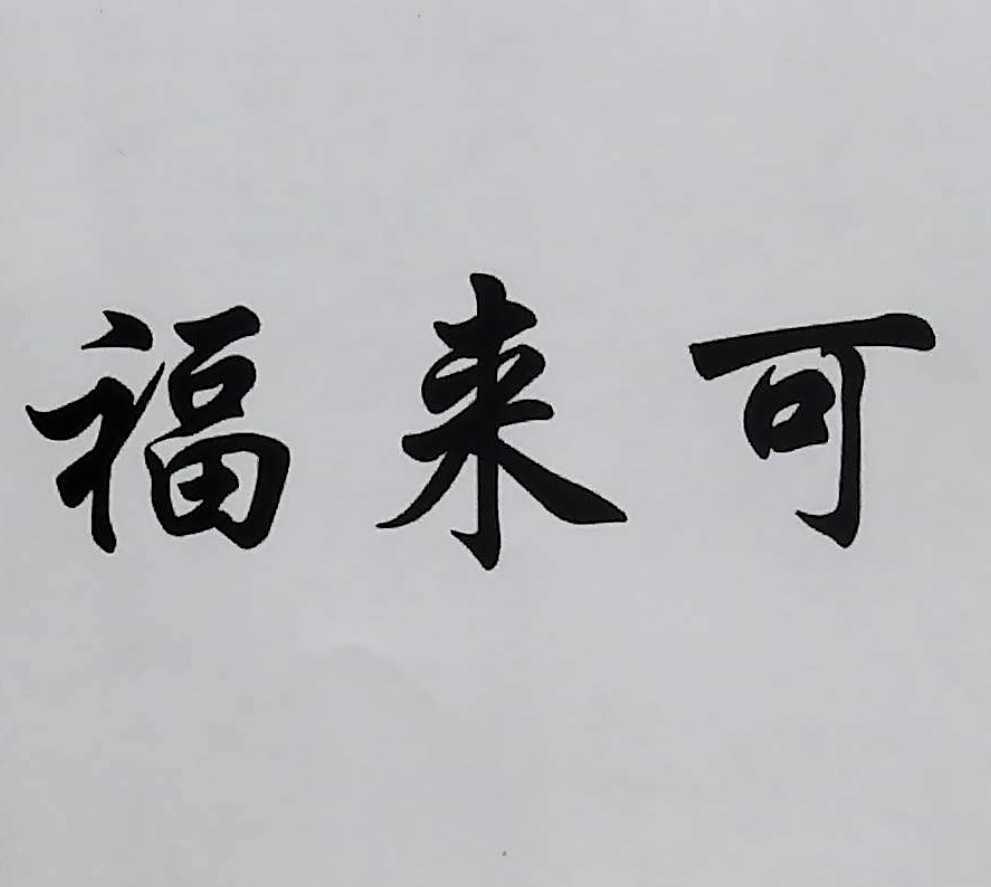 福来可